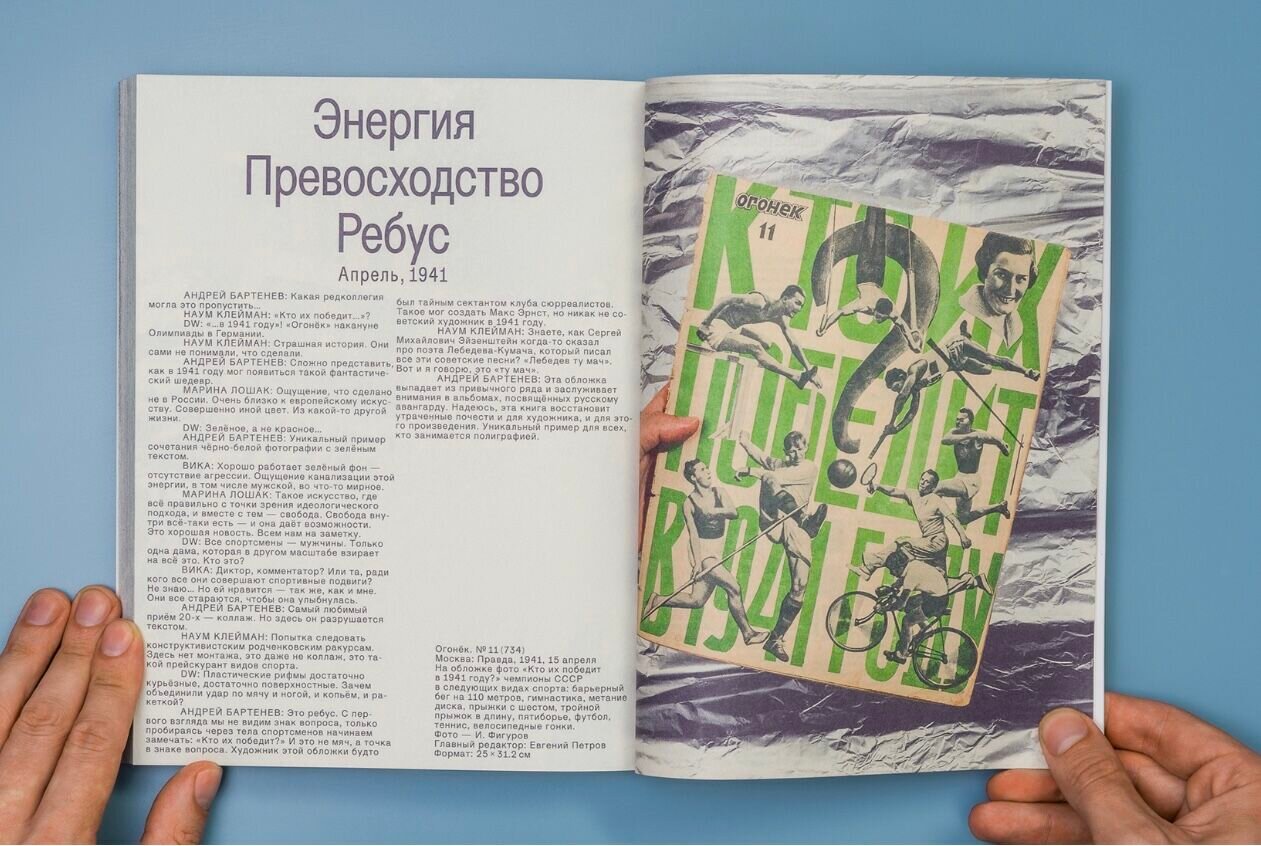 Энергия
Превосходство
Ребус
Апрель, 1941
АНДРЕЙ БАРТЕНЕВ: Какая редколлегия
могла это пропустить...
НАУМ КЛЕЙМАН: «Кто их победит...»?
DW: «...в 1941 году»! «Огонёк» накануне
Олимпиады в Германии.
НАУМ КЛЕЙМАН: Страшная история. Они
сами не понимали, что сделали.
АНДРЕЙ БАРТЕНЕВ: Сложно представить,
как в 1941 году мог появиться такой фантастиче-
ский шедевр.
МАРИНА ЛОШАК: Ощущение, что сделано
не в России. Очень близко к европейскому искус-
ству. Совершенно иной цвет. Из какой-то другой
жизни.
DW: Зелёное, а не красное...
АНДРЕЙ БАРТЕНЕВ: Уникальный пример
сочетания чёрно-белой фотографии с зелёным
текстом.
ВИКА: Хорошо работает зелёный фон —
отсутствие агрессии. Ощущение канализации этой
энергии, в том числе мужской, во что-то мирное.
МАРИНА ЛОШАК: Такое искусство, где
всё правильно с точки зрения идеологического
подхода, и вместе с тем — свобода. Свобода вну-
три всё-таки есть — и она даёт возможности.
Это хорошая новость. Всем нам на заметку.
DW: Все спортсмены — мужчины. Только
одна дама, которая в другом масштабе взирает
на всё это. Кто это?
ВИКА: Диктор, комментатор? Или та, ради
кого все они совершают спортивные подвиги?
Не знаю... Но ей нравится — так же, как и мне.
Они все стараются, чтобы она улыбнулась.
АНДРЕЙ БАРТЕНЕВ: Самый любимый
приём 20-х — коллаж. Но здесь он разрушается
текстом.
НАУМ КЛЕЙМАН: Попытка следовать
конструктивистским родченковским ракурсам.
Здесь нет монтажа, это даже не коллаж, это та-
кой прейскурант видов спорта.
DW: Пластические рифмы достаточно
курьёзные, достаточно поверхностные. Зачем
объединили удар по мячу и ногой, и копьём, и ра-
кеткой?
АНДРЕЙ БАРТЕНЕВ: Это ребус. С пер-
вого взгляда мы не видим знак вопроса, только
пробираясь через тела спортсменов начинаем
замечать: «Кто их победит?» И это не мяч, а точка
в знаке вопроса. Художник этой обложки будто
был тайным сектантом клуба сюрреалистов.
Такое мог создать Макс Эрнст, но никак не со-
ветский художник в 1941 году.
НАУМ КЛЕЙМАН: Знаете, как Сергей
Михайлович Эйзенштейн когда-то сказал
про поэта Лебедева-Кумача, который писал
все эти советские песни? «Лебедев ту мач».
Вот и я говорю, это «ту мач».
АНДРЕЙ БАРТЕНЕВ: Эта обложка
выпадает из привычного ряда и заслуживает
внимания в альбомах, посвящённых русскому
авангарду. Надеюсь, эта книга восстановит
утраченные почести и для художника, и для это-
го произведения. Уникальный пример для всех,
кто занимается полиграфией.
Огонёк. № 11 (734)
Москва: Правда, 1941, 15 апреля
На обложке фото «Кто их победит
в 1941 году?» чемпионы СССР
в следующих видах спорта: барьерный
бег на 110 метров, гимнастика, метание
диска, прыжки с шестом, тройной
прыжок в длину, пятиборье, футбол,
теннис, велосипедные гонки.
Фото — И. Фигуров
Главный редактор: Евгений Петров
Формат: 25 × 31.2 см
огонек
11
КТО ИХ
ПОБЕДИТ
В 1941 ГОДУ